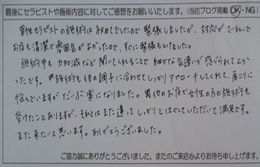 最後にセラピストや施術内容に対してご感想をお願いいたします。(当店ブログ掲載 OK・NG)
男性セラピストの施術は初めてでしたので緊張しましたが、対応がていねいで
お店も清潔で雰囲気がよかったので、すぐに緊張もとけました。
施術中も力加減など聞いてくれることで細やかな気遣いが感じられてよかった
です。
施術も体の調子に合わせてしっかりアプローチしてくれて、肩こりに
悩んでいますがだいぶ楽になりました。
女性の方の施術も
受けたことありますが、それとはまた違ってしっかりとほぐしていただいて満足です。
また来たいと思います。ありがとうございました。
ご協力誠にありがとうございました。またのご来店心よりお待ち申し上げます。